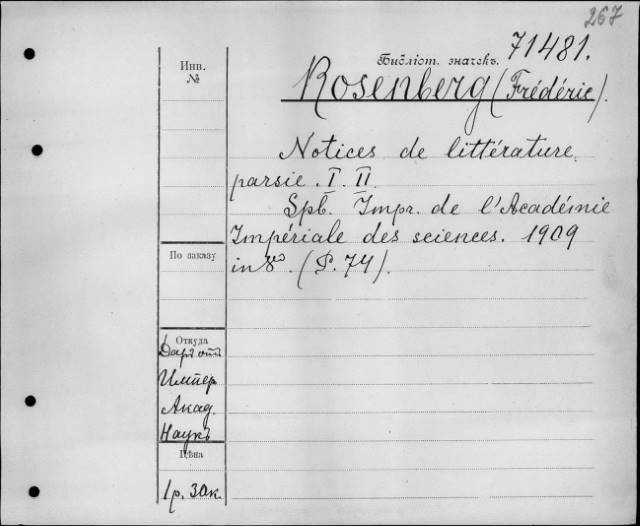 267
Библіот. значекъ. 71481.
Инв.
№
Rosenberg (Frédéric).
Notices de littérature
parsie. I. II.
Spb. Impr. de l'Académie
Impériale des sciences. 1909
in 8º. (P. 74).
По заказу
Откуда
Даръ отъ
Импер.
Акад.
Наукъ
Цѣна
1р. 30к.